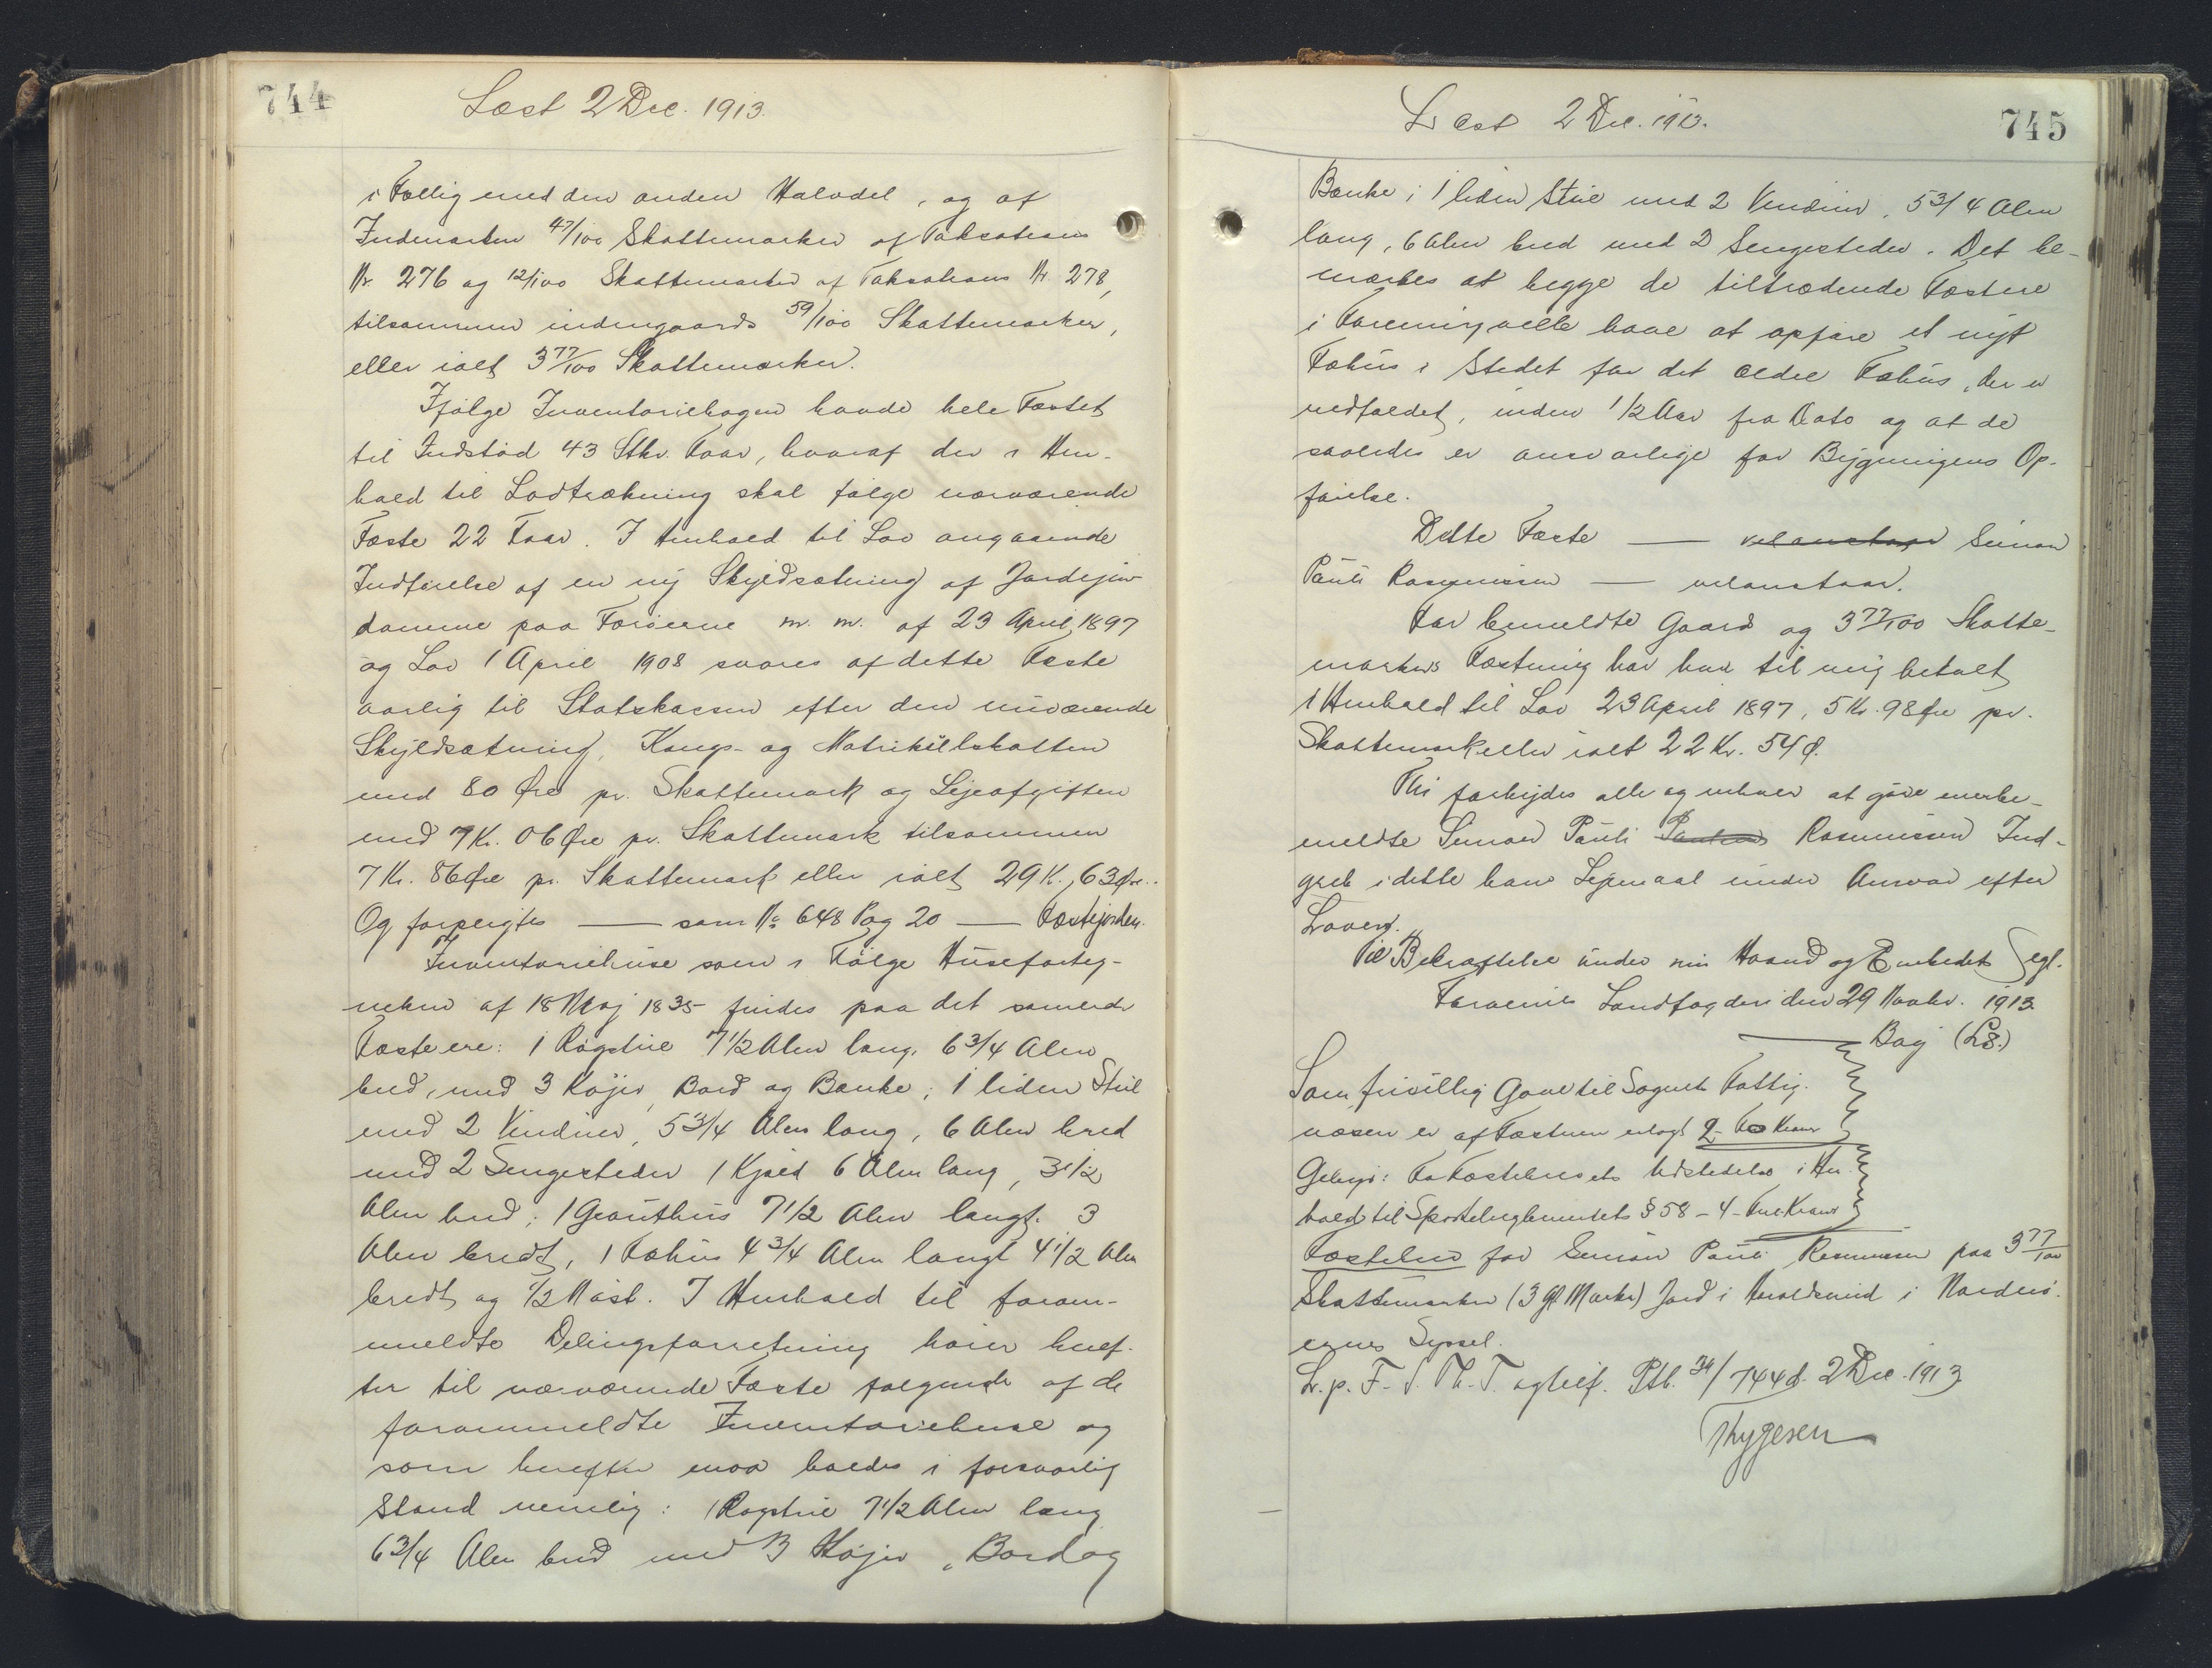 744
Læst 2 Dec. 1913.
i Fællig med den anden Halvdel, og af
Indmarken 47/100 Skattemarker af Taksations
Nr. 276 og 12/100 Skattemarker af Taksations Nr. 278,
tilsammen indengaards 59/100 Skattemarker,
eller ialt 3 77/100 Skattemarker.
Ifølge Inventariebogen havde hele Fæstet
til Indstød 43 Stkr. Faar, hvoraf der i Hen-
hold til Lodtrækning skal følge nærværende
Fæste 22 Faar. I Henhold til Lov angaaende
Indførelse af en ny Skyldsætning af Jordejen-
domme paa Færøerne m. m. af 23 April 1897
og Lov 1 April 1908 svares af dette Fæste
aarlig til Statskassen efter den nuværende
Skyldsætning, Kongs- og Matrikulskatten
med 80 Øre pr. Skattemark og Lejeafgiften
med 7 Kr. 06 Øre pr. Skattemark tilsammen
7 Kr. 86 Øre pr. Skattemark eller ialt 29 K., 63 Øre.
Og forpligtes — som No 648 Pag 20 — Fæstejorden.
Inventariehuse som i Følge Huseforteg-
nelsen af 18 Maj 1835 findes paa det samlede
Fæste ere: 1 Røgstue 7 1/2 Alen lang, 6 3/4 Alen
bred, med 3 Køjer, Bord og Bænke; 1 liden Stue
med 2 Vinduer, 5 3/4 Alen lang, 6 Alen bred
med 2 Sengesteder 1 Kjæld 6 Alen lang, 3 1/2
Alen bred; 1 Grouthus 7 1/2 Alen langt. 3
Alen bredt, 1 Fæhus 4 3/4 Alen langt 4 1/2 Alen
bredt og 1/2 Nøst. I Henhold til forom-
meldte Delingsforretning hører heref-
ter til nærværende Fæste følgende af de
forommeldte Inventariehuse og
som herefter maa holdes i forsvarlig
Stand nemlig: 1 Røgstue 7 1/2 Alen lang
6 3/4 Alen bred med 3 Køjer, Bord og
745
Læst 2 Dec. 1913.
Bænke; 1 liden Stue med 2 Vinduer, 5 3/4 Alen
lang, 6 Alen bred med 2 Sengesteder. Det be-
mærkes at begge de tiltrædende Fæstere
i Forening ville have at opføre et nyt
Fæhus i Stedet for det ældre Fæhus, der er
nedfaldet, inden 1/2 Aar fra Dato og at de
saaledes er ansvarlige for Bygningens Op-
førelse.
Dette Fæste — velanstaar Simon
Pauli Rasmussen — velanstaar.
For bemeldte Gaard og 3 77/100 Skatte-
markers Fæstning har han til mig betalt
i Henhold til Lov 23 April 1897, 5 Kr. 98 Øre pr.
Skattemark eller ialt 22 Kr. 54 Ø.
Thi forbydes alle og enhver at gøre merbe-
meldte Simon Pauli Poulsen Rasmussen Ind-
greb i dette hans Lejemaal under Ansvar efter
Loven.
Til Bekræftelse under min Haand og Embedets Segl.
Færøernes Landfogderi den 29 Novbr. 1913.
— Bog (LS.)
Som frivillig Gave til Sognets Fattig-
væsen er af Fæsteren erlagt 2 - To Kroner
Gebyr: For Fæstebrevets Udstedelse i Hen-
hold til Sportelreglementets § 58 - 4 - Fire Kroner
Fæstebrev for Simon Pauli Rasmussen paa 3 77/100
Skattemarker (3 gl Marker) Jord i Haraldsund i Norderø-
ernes Syssel.
L. p. F. S. Th. T. og tilf. Ptb. 744 d. 2 Dec. 1913
Thygesen